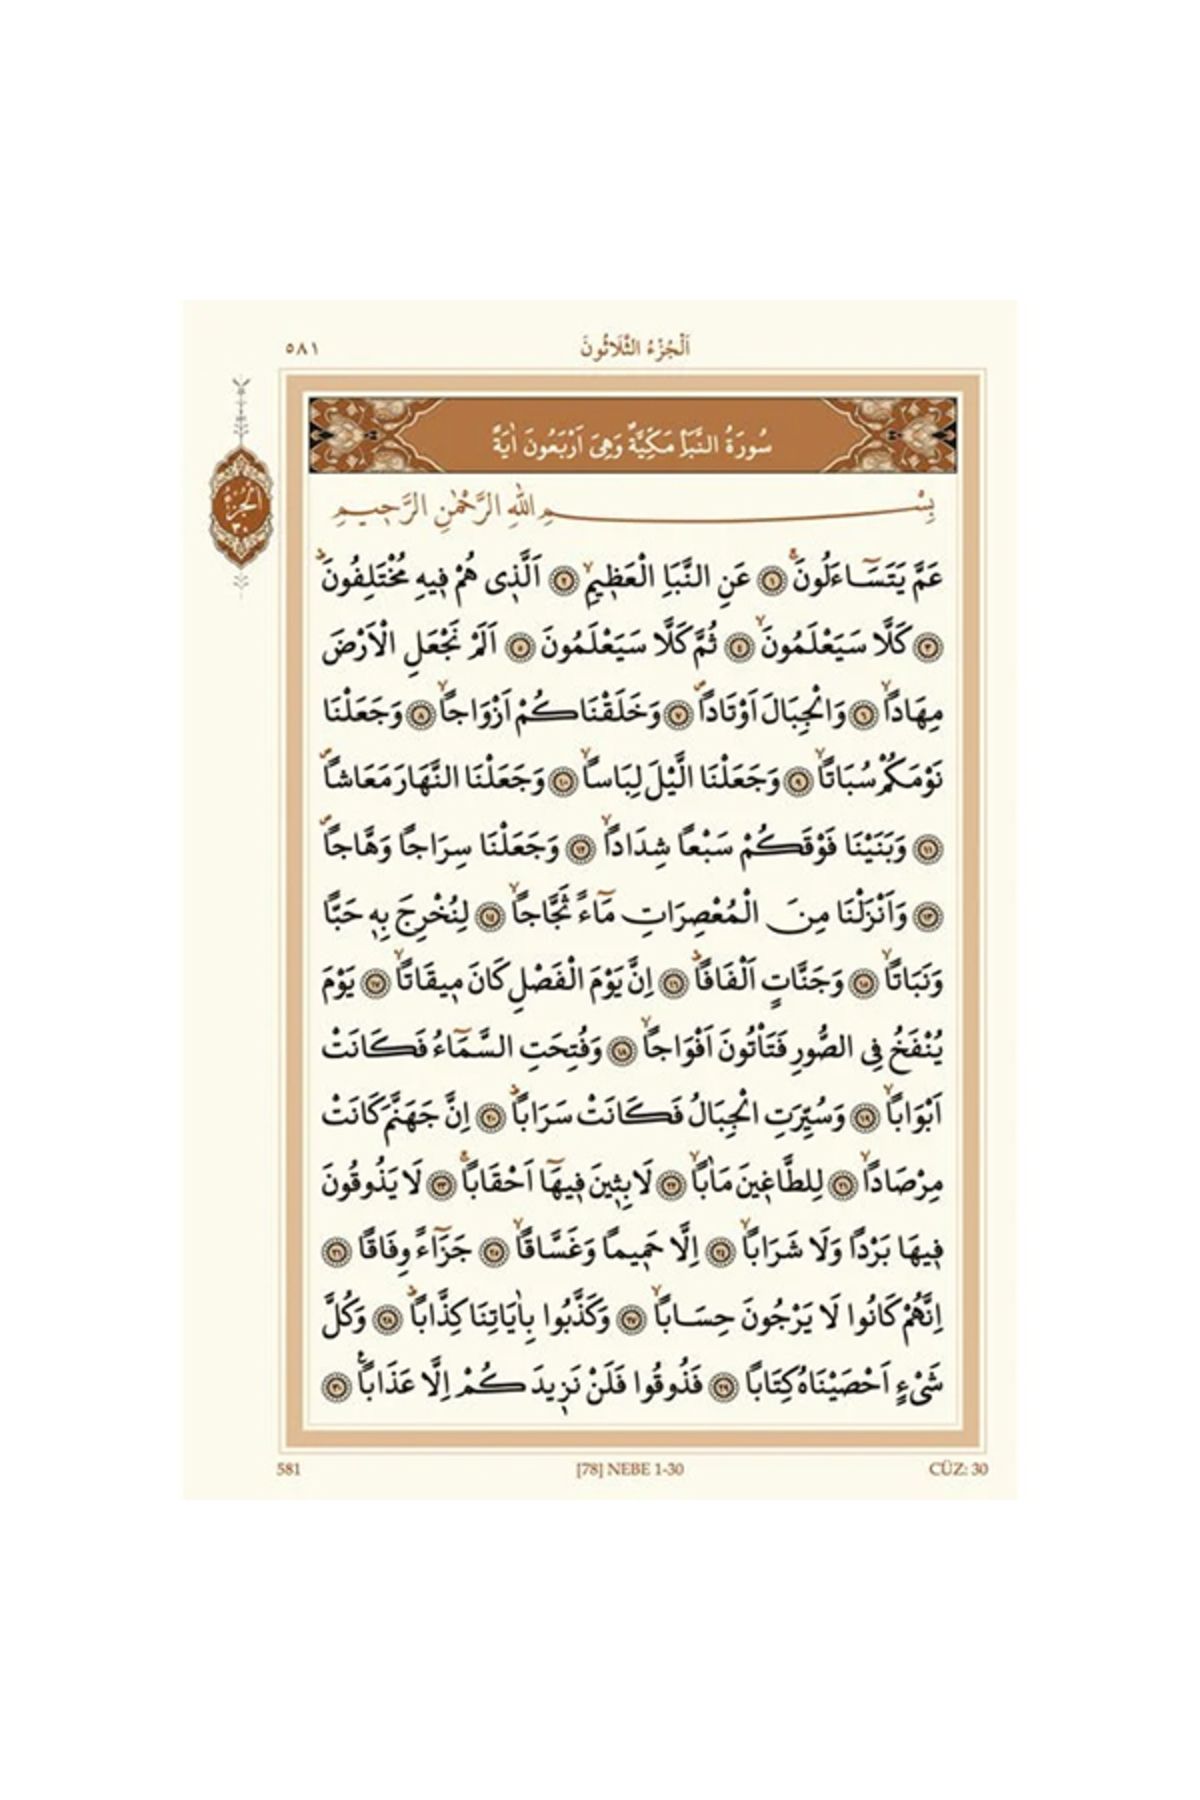 ٥٨١ اَلْجُزْءُ الثَّلَاثُونَ
سُورَةُ النَّبَأِ مَكِّيَّةٌ وَهِيَ اَرْبَعُونَ اٰيَةً
اَلْجُزْءُ
٣٠
بِسْمِ اللّٰهِ الرَّحْمٰنِ الرَّحٖيمِ
عَمَّ يَتَسَٓاءَلُونَۚ ﴿١﴾ عَنِ النَّبَأِ الْعَظٖيمِۙ ﴿٢﴾ اَلَّذٖى هُمْ فٖيهِ مُخْتَلِفُونَۜ
﴿٣﴾ كَلَّا سَيَعْلَمُونَۙ ﴿٤﴾ ثُمَّ كَلَّا سَيَعْلَمُونَ ﴿٥﴾ اَلَمْ نَجْعَلِ الْاَرْضَ
مِهَاداًۙ ﴿٦﴾ وَالْجِبَالَ اَوْتَاداًۖ ﴿٧﴾ وَخَلَقْنَاكُمْ اَزْوَاجاًۙ ﴿٨﴾ وَجَعَلْنَا
نَوْمَكُمْ سُبَاتاًۙ ﴿٩﴾ وَجَعَلْنَا الَّيْلَ لِبَاساًۙ ﴿١٠﴾ وَجَعَلْنَا النَّهَارَ مَعَاشاًۖ
﴿١١﴾ وَبَنَيْنَا فَوْقَكُمْ سَبْعاً شِدَاداًۙ ﴿١٢﴾ وَجَعَلْنَا سِرَاجاً وَهَّاجاًۖ
﴿١٣﴾ وَاَنْزَلْنَا مِنَ الْمُعْصِرَاتِ مَٓاءً ثَجَّاجاًۙ ﴿١٤﴾ لِنُخْرِجَ بِهٖ حَباًّ
وَنَبَاتاًۙ ﴿١٥﴾ وَجَنَّاتٍ اَلْفَافاًۜ ﴿١٦﴾ اِنَّ يَوْمَ الْفَصْلِ كَانَ مٖيقَاتاًۙ ﴿١٧﴾ يَوْمَ
يُنْفَخُ فِى الصُّورِ فَتَأْتُونَ اَفْوَاجاًۙ ﴿١٨﴾ وَفُتِحَتِ السَّمَٓاءُ فَكَانَتْ
اَبْوَاباًۙ ﴿١٩﴾ وَسُيِّرَتِ الْجِبَالُ فَكَانَتْ سَرَاباًۜ ﴿٢٠﴾ اِنَّ جَهَنَّمَ كَانَتْ
مِرْصَاداًۙ ﴿٢١﴾ لِلطَّاغٖينَ مَاٰباًۙ ﴿٢٢﴾ لَابِثٖينَ فٖيهَٓا اَحْقَاباًۚ ﴿٢٣﴾ لَا يَذُوقُونَ
فٖيهَا بَرْداً وَلَا شَرَاباًۙ ﴿٢٤﴾ اِلَّا حَمٖيماً وَغَسَّاقاًۙ ﴿٢٥﴾ جَزَٓاءً وِفَاقاً ﴿٢٦﴾
اِنَّهُمْ كَانُوا لَا يَرْجُونَ حِسَاباًۙ ﴿٢٧﴾ وَكَذَّبُوا بِاٰيَاتِنَا كِذَّاباًۜ ﴿٢٨﴾ وَكُلَّ
شَىْءٍ اَحْصَيْنَاهُ كِتَاباً ﴿٢٩﴾ فَذُوقُوا فَلَنْ نَزٖيدَكُمْ اِلَّا عَذَاباًࣖ ﴿٣٠﴾
581 [78] NEBE 1-30 CÜZ: 30